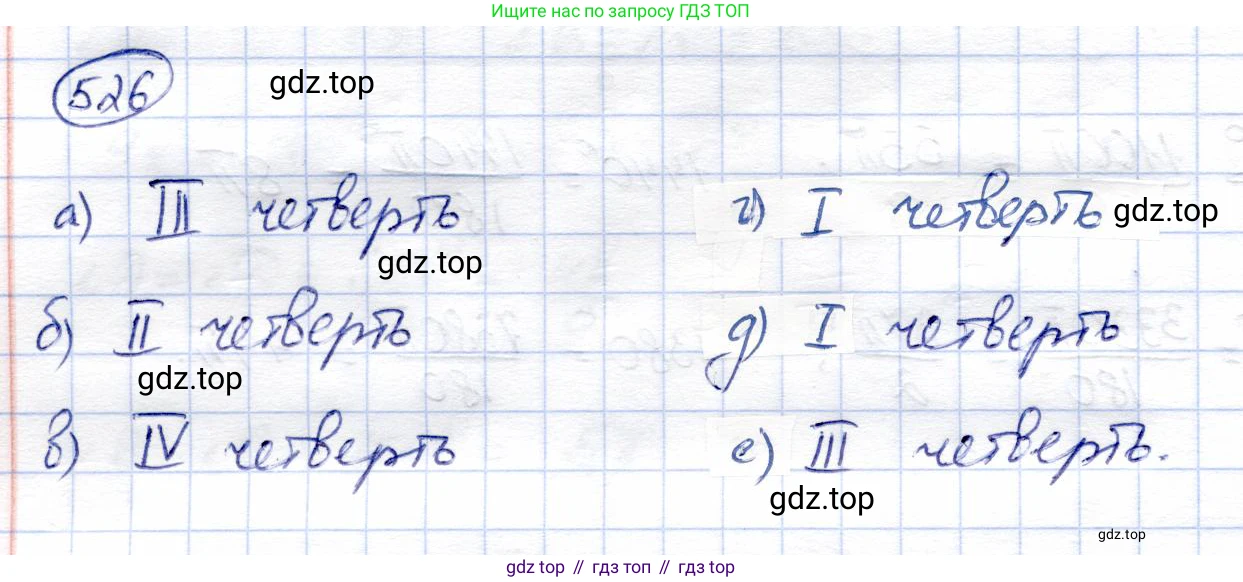 Ищите нас по запросу ГДЗ ТОП
526
gdz.top
а) III четверть
г) I четверть
gdz.top
gdz.top
б) II четверть
д) I четверть
gdz.top
в) IV четверть
е) III четверть.
gdz.top
gdz.top
gdz top // гдз топ // gdz top